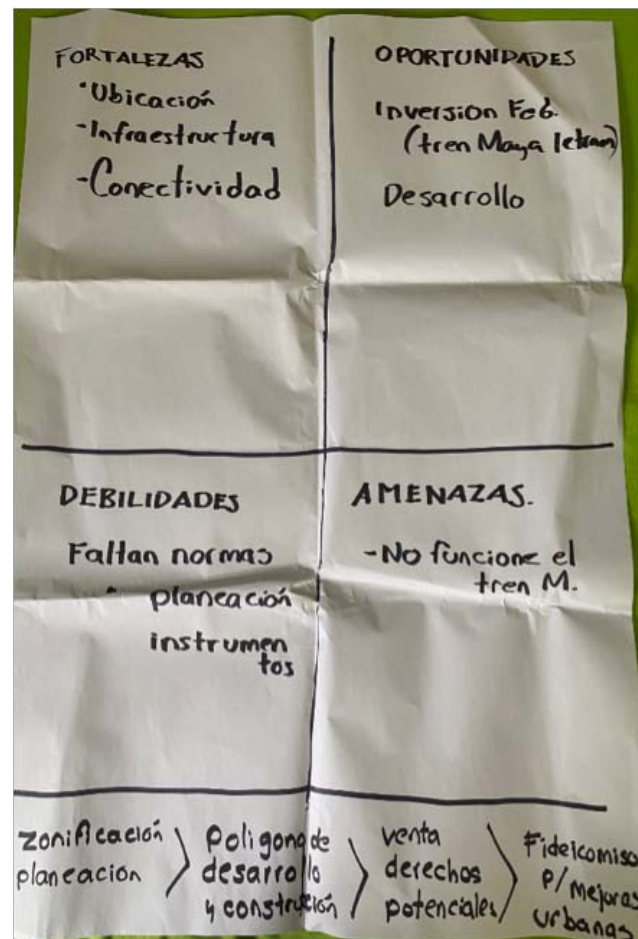 FORTALEZAS
·Ubicación
-Infraestructura
-Conectividad
OPORTUNIDADES
Inversion Fed.
(tren Maya
Desarrollo
DEBILIDADES
Faltan normas
planeación
instrumen
tos
AMENAZAS.
-No funcione el
tren M.
zonificación
planeacion
Poligono de
desarrollo
y construcción
venta
derechos
potenciales
Fideicomiso
P/mejoras
urbanas